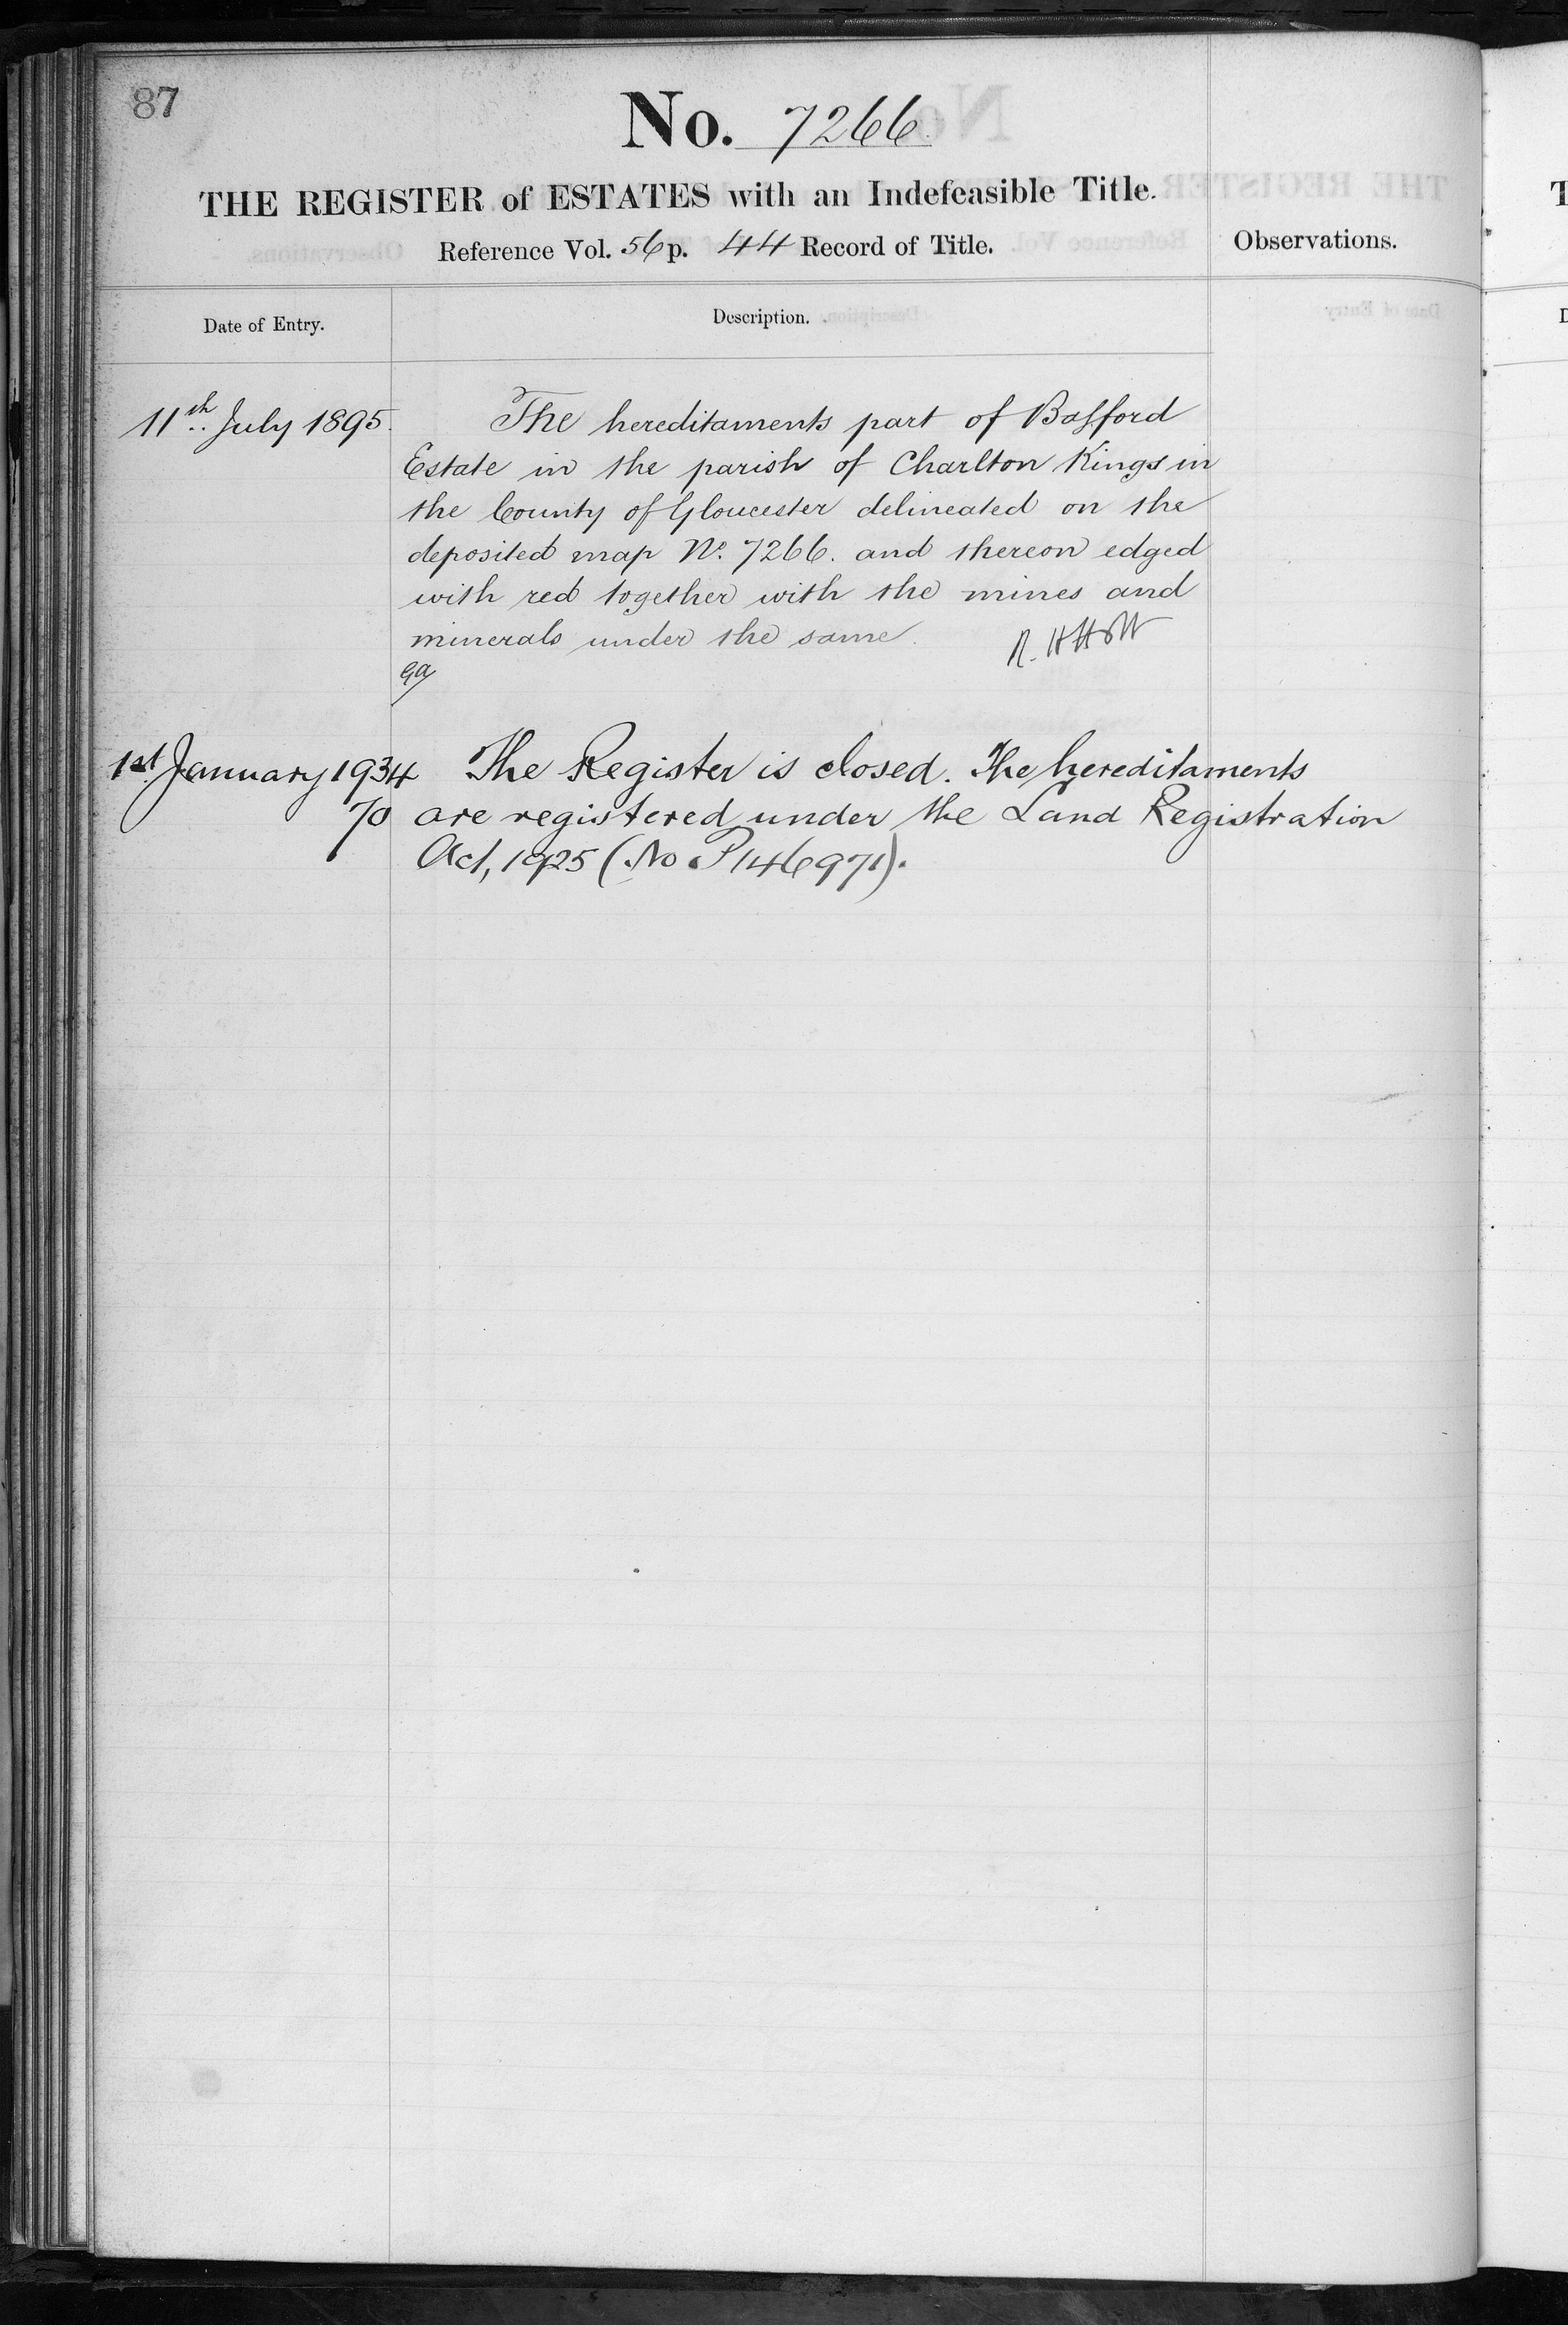 87
No. 7266
THE REGISTER of ESTATES with an Indefeasible Title.
Reference Vol. 56 p. 44 Record of Title.
Observations.
Date of Entry.
Description.
11th July 1895.
The hereditaments part of Bafford
Estate in the parish of Charlton Kings in
the County of Gloucester delineated on the
deposited map No. 7266. and thereon edged
with red together with the mines and
minerals under the same.
1st January 1934
The Register is closed. The hereditaments
are registered under the Land Registration
Act, 1925 (No P146971).